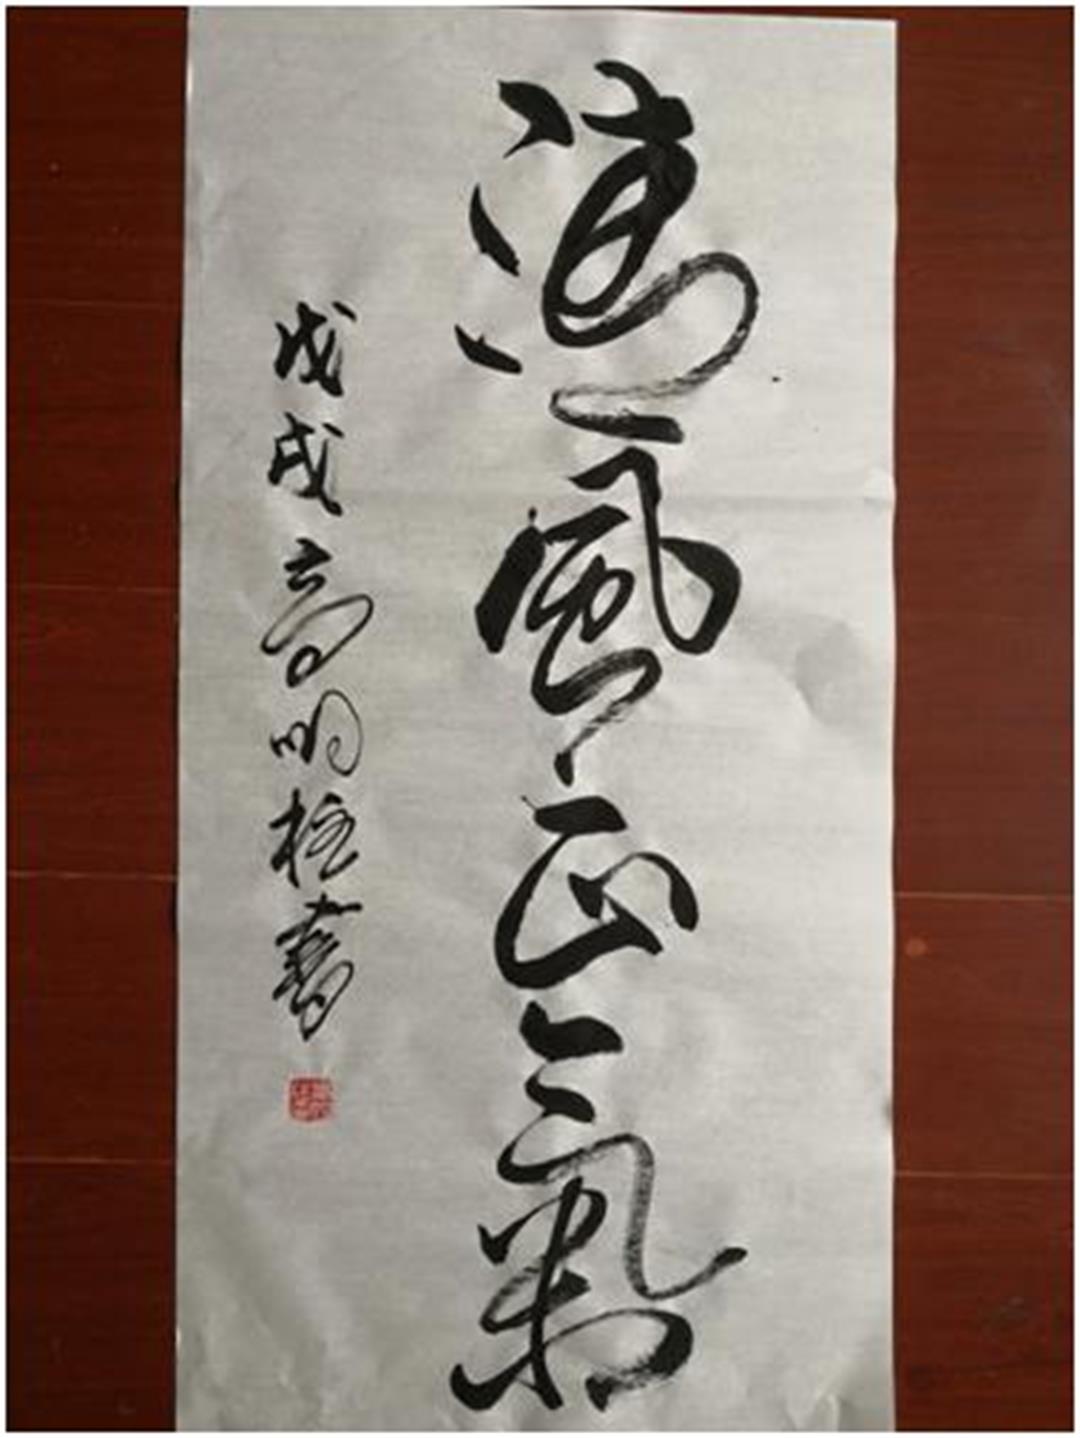 清風正氣
戊戌高明柱書